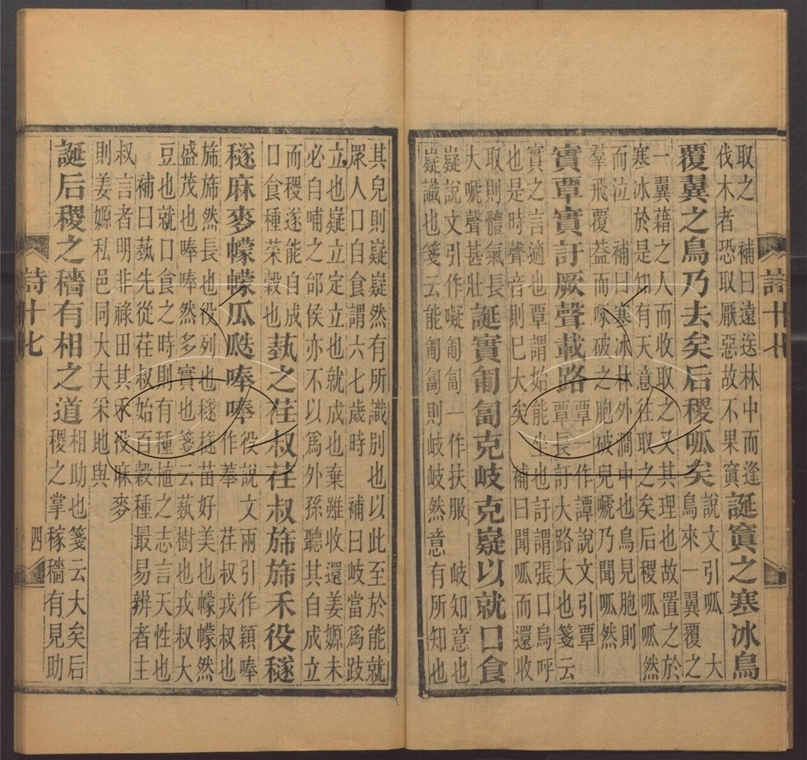 詩十七
取之 補曰遠送林中而逢
伐木者恐取厭惡故不果寘
誕寘之寒冰鳥
覆翼之鳥乃去矣后稷呱矣
說文引呱 大
鳥來一翼覆之
一翼藉之人而收取之又其理也故置之於
寒冰於是知有天意往取之矣后稷呱呱然
而泣 補曰寒冰林外澗中也鳥見胞則
羣飛覆益而啄破之胞破兒嘅乃聞呱然
實覃實訏厥聲載路
覃一作譚說文引覃
覃長訏大路大也箋云
實之言適也覃謂始能坐也訏謂張口嗚呼
也是時聲音則巳大矣 補曰聞呱而還收
取則體氣長
大嘅聲甚壯
誕實匍匐克岐克嶷以就口食
嶷說文引作㘈匍匐一作扶服 岐知意也
嶷識也箋云能匍匐則岐岐然意有所知也
其兒則嶷嶷然有所識別也以此至於能就
眾人口自食謂六七歲時 補曰岐當爲跂
立也嶷立定立也就成也棄雖收還姜嫄未
必自哺之邰侯亦不以爲外孫聽其自成立
而稷遂能自成
口食種菜穀也
蓺之荏叔荏叔旆旆禾役穟
穟麻麥幪幪瓜瓞唪唪
役說文兩引作穎唪
作菶 荏叔戎叔也
旆旆然長也役列也穟穟苗好美也幪幪然
盛茂也唪唪然多實也箋云蓺樹也戎叔大
豆也就口食之時則有種植之志言天性也
補曰蓺先從荏叔始百穀種最易辨者主
叔言者明非祿田其禾役麻麥
則姜嫄私邑同大夫采地與
誕后稷之穡有相之道
相助也箋云大矣后
稷之掌稼穡有見助
詩十七
四